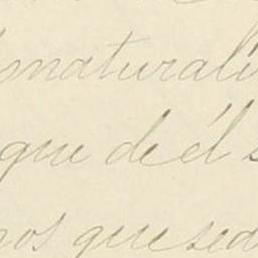 naturali
que de él s
nos que se d